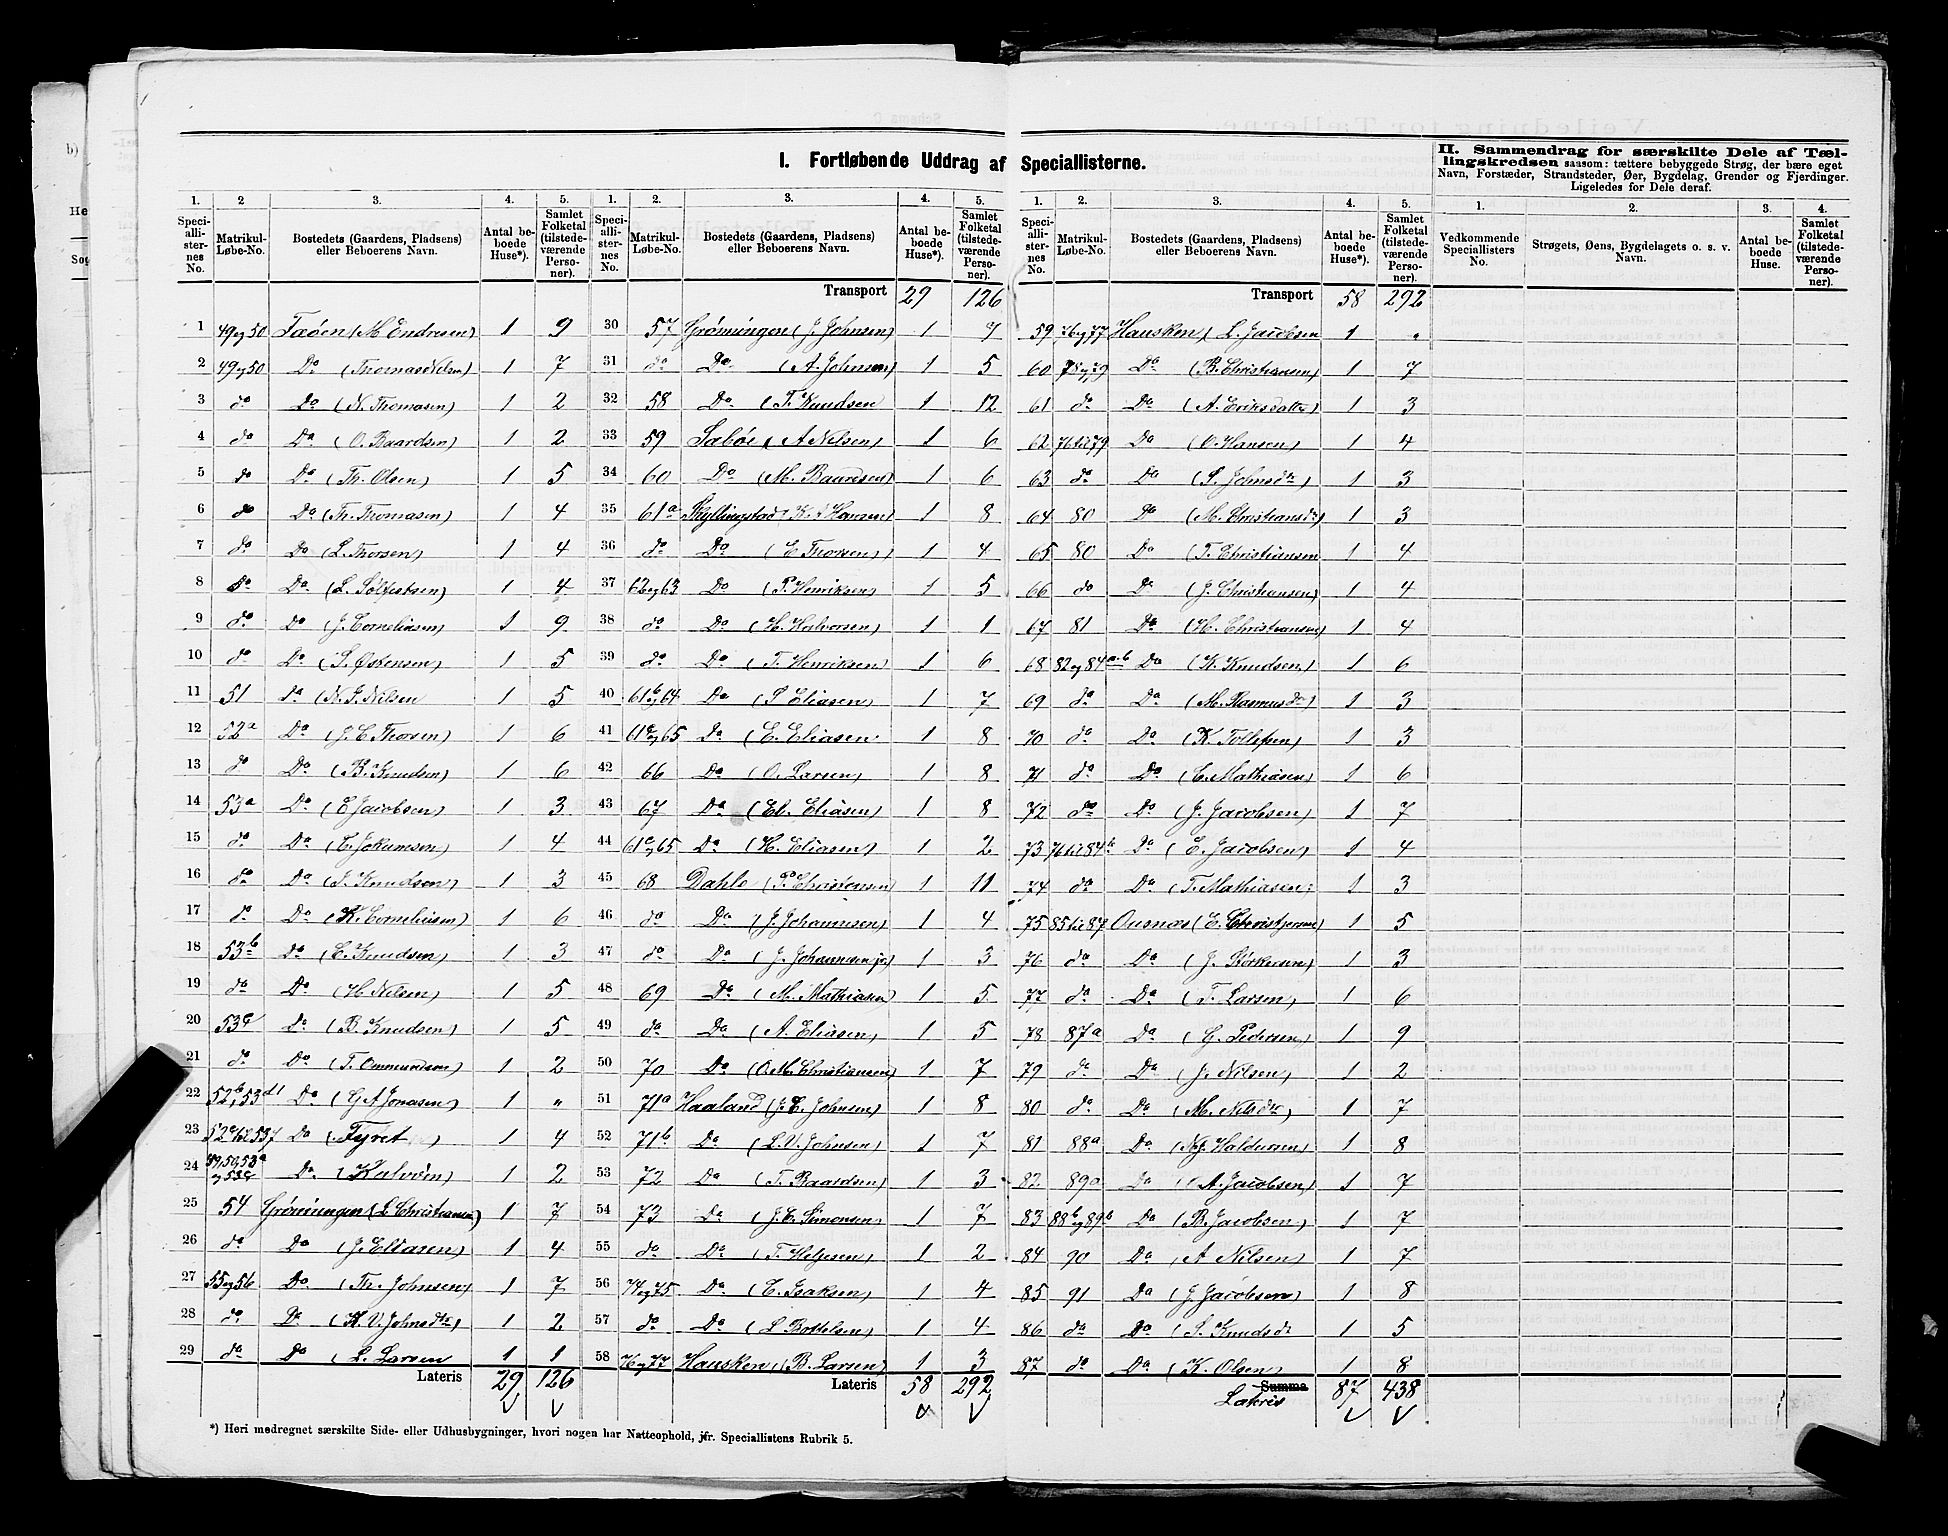 I. Fortløbende Uddrag af Speciallisterne.
II. Sammendrag for særskilte Dele af Tæl-
lingskredsen saasom: tættere bebyggede Strøg, der bære eget
Navn, Forstæder, Strandsteder, Øer, Bygdelag, Grender og Fjerdinger.
Ligeledes for Dele deraf.
1. 2 3. 4. 5. 1. 2. 3. 4. 5. 1. 2. 3. 4. 5. 1. 2. 3. 4.
Speciallisternes No. Matrikul-Løbe-No. Bostedets (Gaardens, Pladsens) eller Beboerens Navn. Antal beboede Huse*). Samlet Folketal (tilstedeværende Personer).
Speciallisternes No. Matrikul-Løbe-No. Bostedets (Gaardens, Pladsens) eller Beboerens Navn. Antal beboede Huse*). Samlet Folketal (tilstedeværende Personer).
Speciallisternes No. Matrikul-Løbe-No. Bostedets (Gaardens, Pladsens) eller Beboerens Navn. Antal beboede Huse*). Samlet Folketal (tilstedeværende Personer).
Vedkommende Speciallisters No. Strøgets, Øens, Bygdelagets o. s. v. Navn. Antal beboede Huse. Samlet Folketal (tilstedeværende Personer).
1 49og50 Faøen (M Endresen) 1 9
2 49og50 Do (Thomas Nilsen) 1 7
3 do Do (N. Thomasen) 1 2
4 do Do (O. Baardsen) 1 2
5 do Do (Th. Olsen) 1 5
6 do Do (Th. Thomasen) 1 4
7 do Do (L. Thorsen) 1 4
8 do Do (L. Sølfestsen) 1 4
9 do Do (J. Corneliusen) 1 9
10 do Do (S. Østensen) 1 5
11 51 do (N. J. Nilsen 1 5
12 52a Do (J. E. Thorsen) 1 6
13 do Do (B. Knudsen) 1 6
14 53a Do (E Jacobsen) 1 3
15 do Do (T. Jokumsen) 1 4
16 do Do (S. Knudsen) 1 3
17 do Do (K. Corneliusen) 1 6
18 53b Do (E. Knudsen) 1 3
19 do Do (H. Nilsen) 1 5
20 53c do (B. Knudsen) 1 5
21 do Do (T. Ommundsen) 1 2
22 52b,53d1 Do (G A Jonasen) 1 "
23 Do (Fyret) 1 4
24 49,50,53a og53c Do (Kalvøen) 1 2
25 54 Grønningen (L Christiansen) 1 7
26 do Do (J. Eliasen) 1 4
27 55og56 Do (Th. Johnsen) 1 7
28 do Do (K. V. Johnsdtr) 1 2
29 do Do (L. Larsen 1 1
Lateris 29 126
Transport 29 126
30 57 Grønningen (J. Johnsen) 1 7
31 do Do (A. Johnsen) 1 5
32 58 Do (T. Knudsen 1 12
33 59 Sabøe (A Nilsen) 1 6
34 60 Do (M. Baardsen) 1 6
35 61a Skyllingstad (K. Hansen) 1 8
36 do Do (E Thorsen) 1 4
37 62og63 Do (P. Henriksen) 1 5
38 do Do (H. Halvorsen) 1 1
39 do Do (T. Henriksen) 1 6
40 61bog64 Do (P Eliasen) 1 7
41 61cog65 Do (E. Eliasen. 1 8
42 66 Do (O. Larsen) 1 8
43 67 Do (El. Eliasen) 1 8
44 61cog65 Do (H. Eliasen) 1 2
45 68 Dahle (P. Christensen) 1 11
46 do Do (J. Johannesen) 1 4
47 do Do (J. Johannesen jr) 1 3
48 69 Do (M. Mathiasen) 1 5
49 do Do (A. Eliasen) 1 5
50 70 Do (O. M. Christiansen) 1 7
51 71a Haaland (J. E. Johnsen) 1 8
52 71b Do (L. V. Johnsen) 1 7
53 72 Do (T. Baardsen) 1 3
54 73 Do (J. E. Simonsen) 1 7
55 do Do (T. Helgesen) 1 2
56 74og75 Do (E. Isaksen) 1 4
57 do Do (L Bottelsen) 1 4
58 76og77 Hausken (B. Larsen) 1 3
Lateris 58 292
Transport 58 292
59 76og77 Hausken (L. Jacobsen 1 "
60 78og79 Do (B. Christiansen) 1 7
61 do Do (A. Eriksdatter) 1 3
62 76til79 Do (O. Hansen) 1 4
63 do Do (S. Johnsdtr) 1 3
64 80 Do (M. Christiansdtr) 1 3
65 80 Do (T. Christiansen 1 4
66 do Do (J. Christiansen) 1 4
67 81 Do (H. Christiansen) 1 4
68 82og84a-b Do (K. Knudsen) 1 6
69 do Do (M. Rasmusdtr) 1 3
70 do Do (K. Tollefsen) 1 3
71 do Do (E. Mathiasen) 1 6
72 do Do (J. Jacobsen) 1 7
73 76til84b Do (E. Jacobsen) 1 4
74 do Do (T. Mathiasen) 1 3
75 85til87 Ousnæs (E. Christophersen) 1 5
76 do Do (J. Størkersen) 1 3
77 do Do (T. Larsen) 1 6
78 87a Do (G. Pedersen) 1 9
79 do Do (J. Nilsen) 1 2
80 do Do (M. Nilsdtr) 1 7
81 88a Do (N. J. Haldorsen) 1 8
82 89a Do (A. Jacobsen) 1 7
83 88bog89b Do (B. Jacobsen) 1 7
84 90 Do (A Nilsen) 1 7
85 91 Do (J. Jacobsen) 1 8
86 do Do (S. Knudsdtr 1 5
87 do Do (K. Olsen) 1 8
Summa Lateris 87 438
*) Heri medregnet særskilte Side- eller Udhusbygninger, hvori nogen har Natteophold, jfr. Speciallistens Rubrik 5.